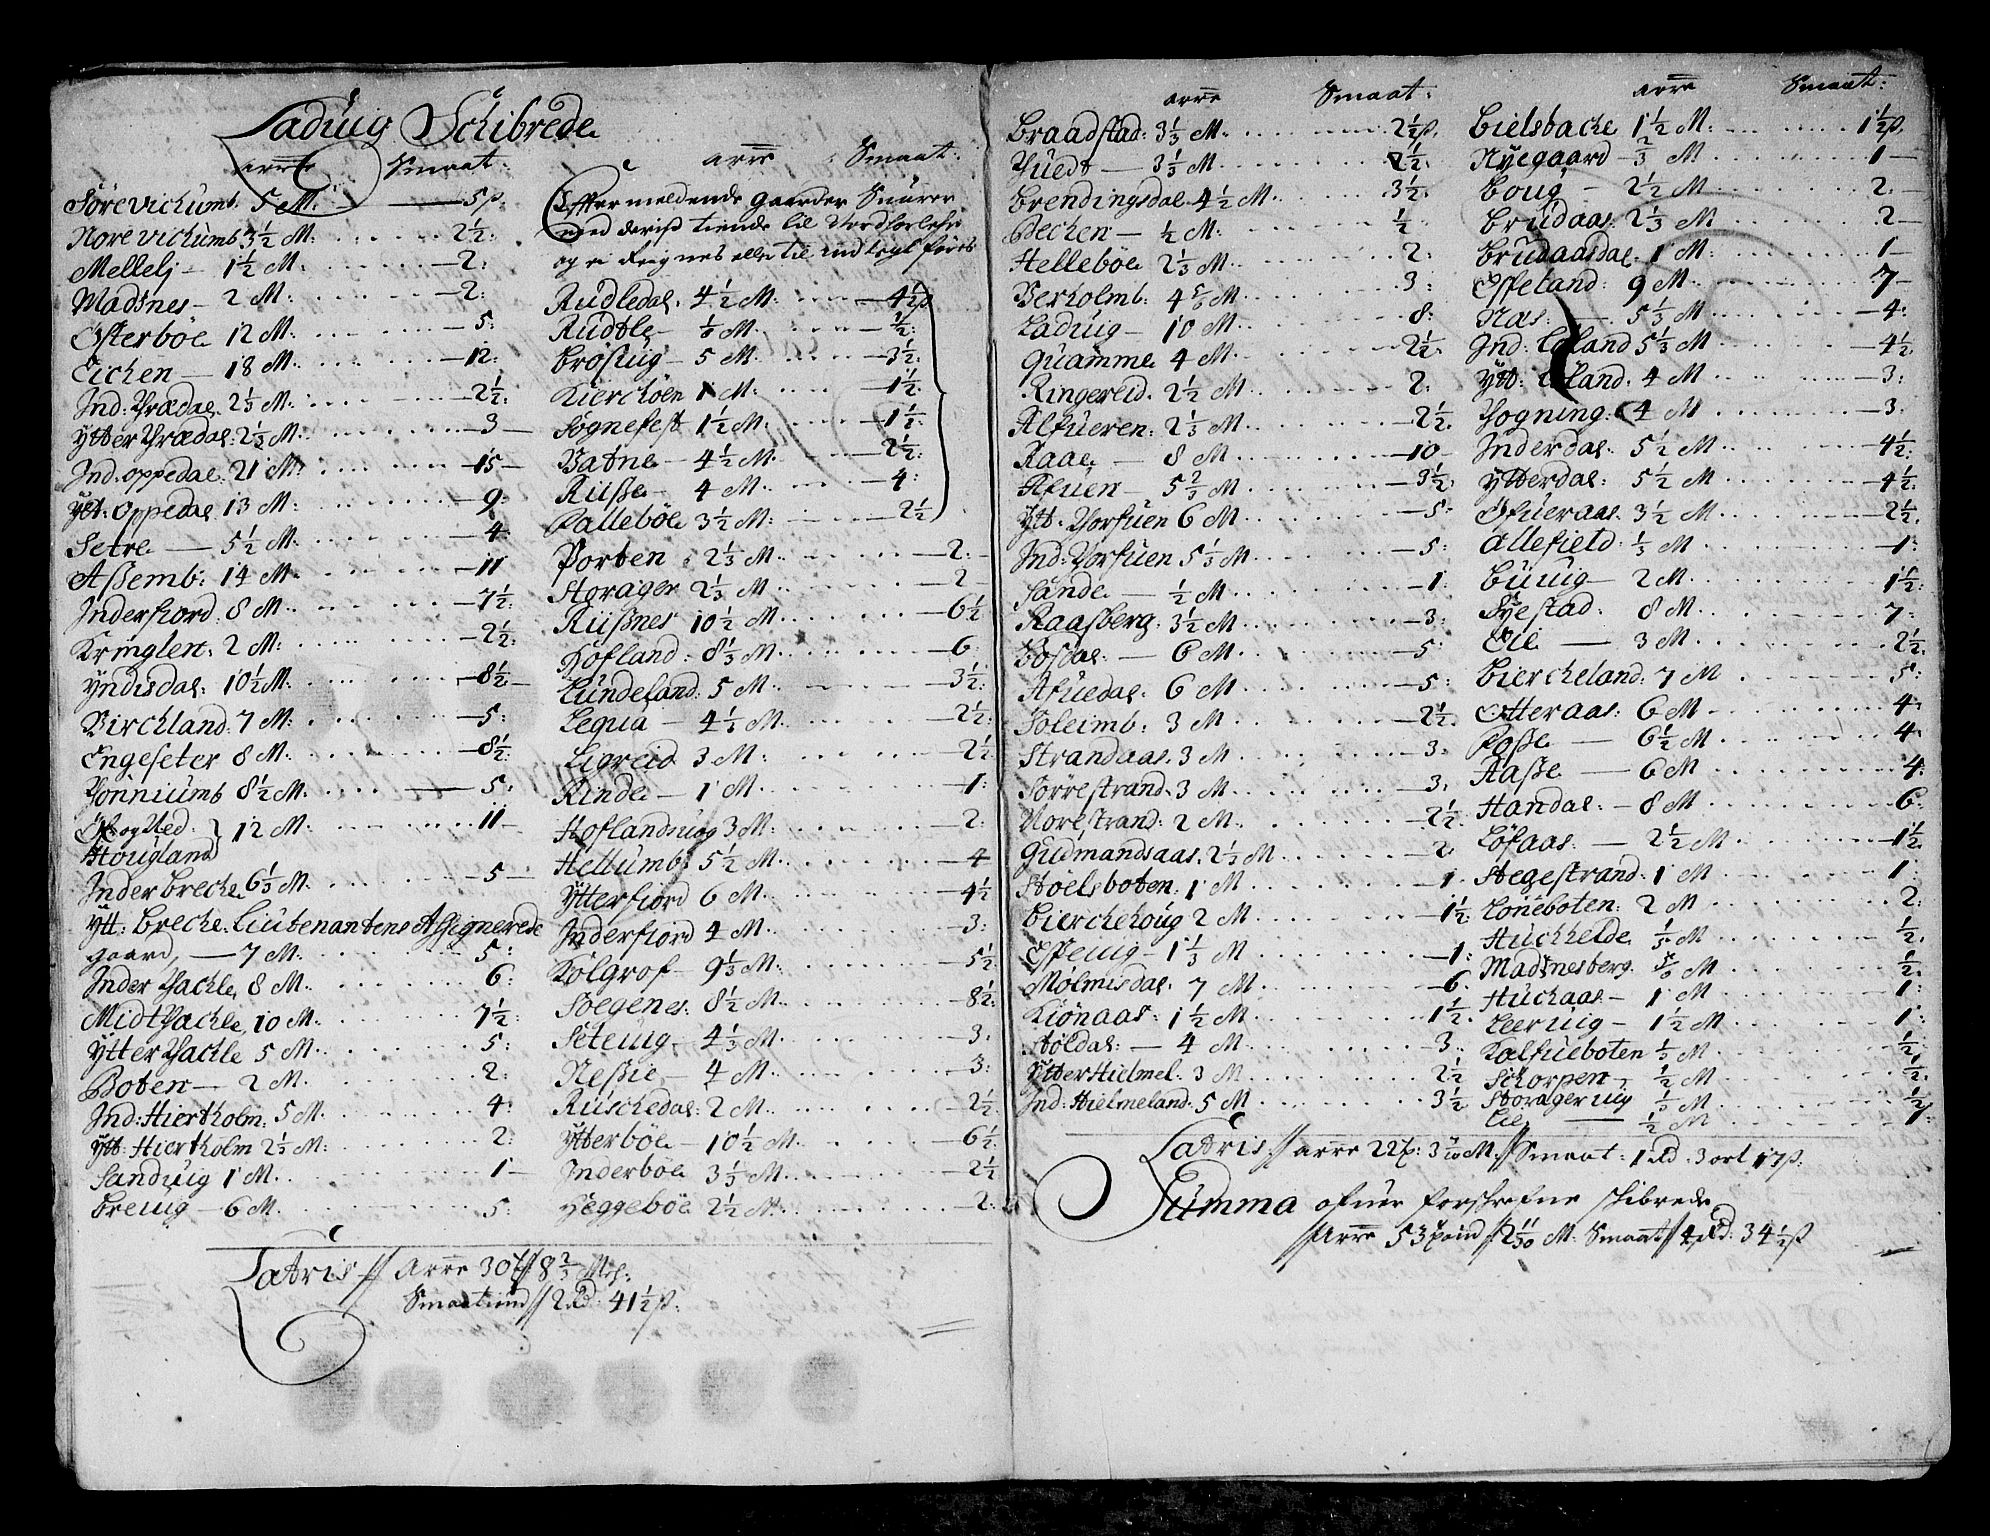 Ladüig Schibrede
arre Smaat:
Sörevichumb. 5 M: 5 ß.
Norevichumb 3½ M: 2½:
Mellelj 1½ M: 2:
Madsnes 2 M: 2:
Osterböe 12 M: 5:
Eichen 18 M: 12:
Ind: Thrædal, 2⅓ M: 2½:
Ytter Thrædal: 2⅓ M: 3
Ind: oppedal 21 M: 15
Ytt: oppedal 13 M: 9:
Setre 5½ M: 4:
Aßemb: 14 M: 11
Inderfiord: 8 M: 7½:
Kringlen: 2 M: 2½:
Yndisdal: 10½ M: 8½:
Birchland: 7 M: 5:
Engeseter 8 M: 8½:
Thönniumb 8½ M: 5:
Öf: og Ned: Hougland 12 M: 11
Inder breche 6⅓ M: 5
Ytt: breche. Lieutenantens Assignerede
gaard, 7 M: 5:
Inder Thachle, 8 M: 6:
Midt Thachle, 10 M: 7½:
Ytter Thachle 5 M: 5:
Boten 2 M: 2:
Ind: Hiertholm: 5 M: 4:
Ytt: Hiertholm 2⅓ M: 2:
Sandüig 1 M: 1
breüig 6 M: 5:
arre Smaat:
Efftermeldende gaarder Suarer
ej deignes eller til indtegt føres
Rüdledal. 4½ M: 4½ ß
Rüdtle M: ½:
brösüig 5 M: 3½:
Kierchöen 1 M: 1½:
Sognefest 1½ M: 1½:
Vatne 4½ M: 2½:
Rüße 4 M: 4:
Pallebö 3½ M: 2½
Porten 2⅓ M: 2:
Storager 2⅓ M: 2
Rüßnes 10½ M: 6½
Höfland: 8⅓ M: 6
Lündeland: 5 M: 3½:
Leqüa 4⅓ M: 2½:
Ligreid 3 M: 2½
Rinde 1 M: 1:
Hoflandsüog 3 M: 2:
Hellümb: 5½ M: 4
Ytterfiord 6 M: 4½
Inderfiord 4 M: 3:
Kolgrof 9⅓ M: 5½
Soegenes: 8½ M: 8½
Seteüig 4⅓ M: 3:
Neßie 4 M: 3:
Rüschedal: 2 M: 2½
Ytterböe 10½ M: 6½
Inderböe 3⅓ M: 2½
Heggeböe 2½ M: 2:
Latris // Arre 30 8⅔ M:
Smaatiend // 2 Rd: 41½ ß.
arre Smaat:
braadstad: 3⅓ M: 2½ ß.
Thüedt 3⅓ M: 2½:
brendingsdal 4½ M: 3½:
Bechen ½ M: ½
Helleböe 2⅓ M: 2:
Verholmb: 4 M: 3:
Ladüig 10 M: 8:
Quamme 4 M: 2½:
Ringereid. 2½ M: 2:
Alfüeren: 2⅓ M: 2½
Raae 8 M: 10
Afüen 5⅔ M: 3½:
Ytt: Thorfüen 6 M: 5:
Ind: Thorfüen 5⅓ M: 5:
Sande ½ M: 1:
Raasberg: 3½ M: 3:
Bosdal: 6 M: 5:
Afüedal: 6 M: 5:
Soleimb: 3 M: 2½:
Strandaas 3 M: 3:
Sörrestrand. 3 M: 3:
Norestrand: 2 M: 2½:
Güdmandsaas. 2½ M: 2:
Stöelsboten: 1 M: 1:
bierchehoug 2 M: 1½:
Effeüig 1⅓ M: 1:
Mölmisdal. 7 M: 6:
Kiönaas: 1½ M: 1½:
Stöldal: 4 M: 3:
Ytter Hielmel. 3 M: 2½
Ind: Hielmeland: 5 M: 3½
arre Smaat:
bielsbache 1½ M: 1½ ß.
Nyegaard ⅔ M: 1
boug 2½ M: 2
brüdaas 2⅓ M: 2
brüdaasdal 1 M: 1
Effeland: 9 M: 7
Næs: 5⅓ M: 4:
Ind: Lland 5⅓ M: 4½:
Ytt: land. 4 M: 3:
Thogning: 4 M: 3:
Inderdal 5½ M: 4½:
Ytterdal: 5½ M: 4½:
Öfüeraas. 3½ M: 2½:
allefield ⅓ M: 1:
büüig 2 M: 1½:
Syestad: 8 M: 7:
Elie 3 M: 2½:
biercheland: 7 M: 5:
Otteraas: 6 M: 4:
Poße 6½ M: 4:
Aaße 6 M: 4:
Handal: 8 M: 6:
Löfaas. 2½ M: 1½
Stegestrand. 1 M: 1:
Löneboten: 2 M: 2:
Hüchhelde. ⅓ M: ½:
Madsnesberg. M: ½:
Hüchaas 1 M: 1:
Leerüig 1½ M: 1:
Kalfüeboten ⅓ M: ½:
Schorpen ½ M: ½:
Storagerüig ⅓ M: ½:
Lie ½ M: 1:
Latris. // arre 22 p: 3 M. // Smaat: 1 Rd: 3 ort 17 ß.
Summa ofuer forschrefne schibrede
// Arre 53 pund // 2 M: Smaat // 4 Rd: 34½ ß